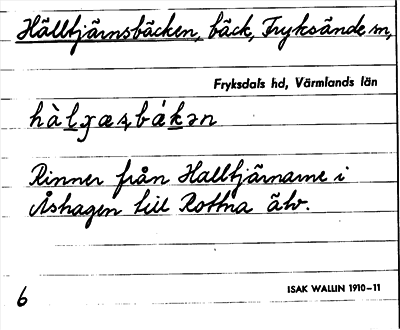 Hälltjärnsbäcken, bäck, Fryksände sn,
Fryksdals hd, Värmlands län
Rinner från Halltjärnarne i
Åshagen till Rottna älv.
6
ISAK WALLIN 1910-11